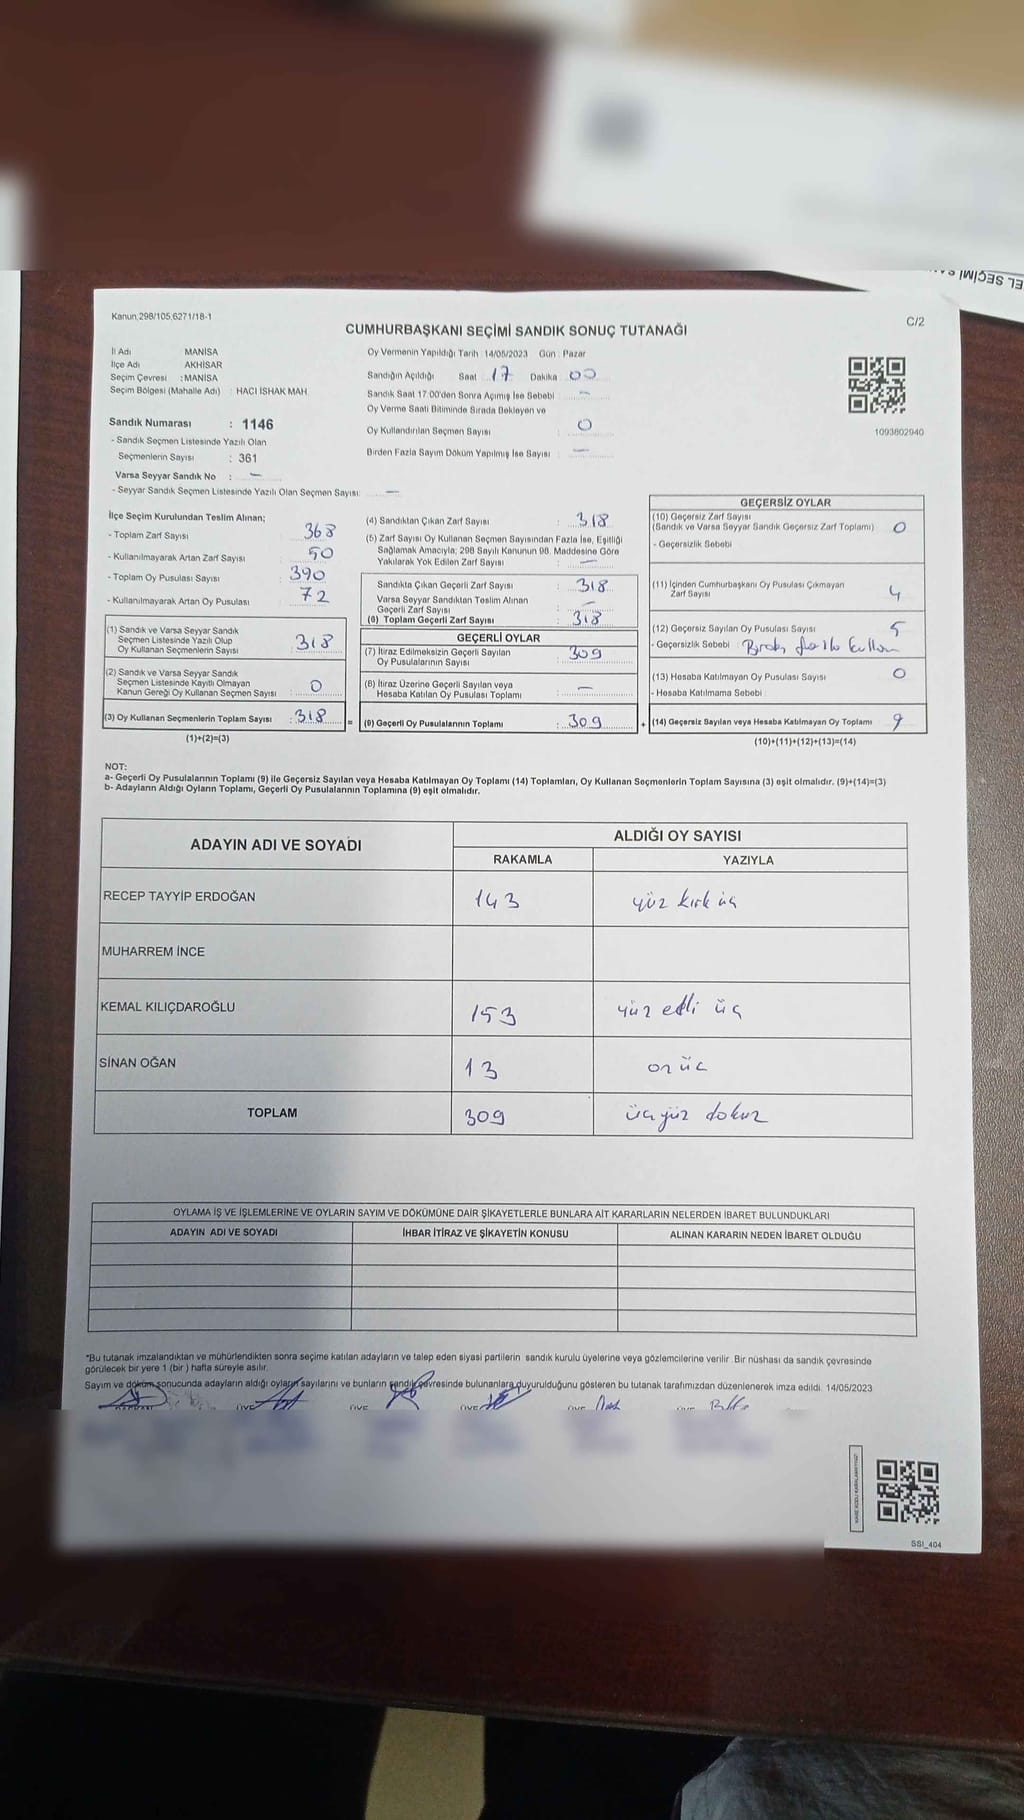 EL SEÇİMİ SA
Kanun.298/105,6271/18-1
C/2
CUMHURBAŞKANI SEÇİMİ SANDIK SONUÇ TUTANAĞI
İl Adı MANİSA
İlçe Adı AKHİSAR
Seçim Çevresi : MANİSA
Seçim Bölgesi (Mahalle Adı) : HACI İSHAK MAH.
Sandık Numarası : 1146
- Sandık Seçmen Listesinde Yazılı Olan
Seçmenlerin Sayısı : 361
Varsa Seyyar Sandık No : —
- Seyyar Sandık Seçmen Listesinde Yazılı Olan Seçmen Sayısı: —
Oy Vermenin Yapıldığı Tarih 14/05/2023 Gün : Pazar
Sandığın Açıldığı Saat 17 Dakika 00
Sandık Saat 17:00'den Sonra Açımış İse Sebebi : —
Oy Verme Saati Bitiminde Sırada Bekleyen ve
Oy Kullandırılan Seçmen Sayısı : 0
Birden Fazla Sayım Döküm Yapılmış İse Sayısı : —
1093802940
İlçe Seçim Kurulundan Teslim Alınan;
- Toplam Zarf Sayısı : 368
- Kullanılmayarak Artan Zarf Sayısı : 50
- Toplam Oy Pusulası Sayısı : 390
- Kullanılmayarak Artan Oy Pusulası : 72
(1) Sandık ve Varsa Seyyar Sandık
Seçmen Listesinde Yazılı Olup
Oy Kullanan Seçmenlerin Sayısı : 318
(2) Sandık ve Varsa Seyyar Sandık
Seçmen Listesinde Kayıtlı Olmayan
Kanun Gereği Oy Kullanan Seçmen Sayısı : 0
(3) Oy Kullanan Seçmenlerin Toplam Sayısı : 318
(1)+(2)=(3)
(4) Sandıktan Çıkan Zarf Sayısı : 318
(5) Zarf Sayısı Oy Kullanan Seçmen Sayısından Fazla İse, Eşitliği
Sağlamak Amacıyla; 298 Sayılı Kanunun 98. Maddesine Göre
Yakılarak Yok Edilen Zarf Sayısı : —
Sandıkta Çıkan Geçerli Zarf Sayısı : 318
Varsa Seyyar Sandıktan Teslim Alınan
Geçerli Zarf Sayısı : —
(6) Toplam Geçerli Zarf Sayısı : 318
GEÇERLİ OYLAR
(7) İtiraz Edilmeksizin Geçerli Sayılan
Oy Pusulalarının Sayısı : 309
(8) İtiraz Üzerine Geçerli Sayılan veya
Hesaba Katılan Oy Pusulası Toplamı : —
= (9) Geçerli Oy Pusulalarının Toplamı : 309
GEÇERSİZ OYLAR
(10) Geçersiz Zarf Sayısı
(Sandık ve Varsa Seyyar Sandık Geçersiz Zarf Toplamı) : 0
- Geçersizlik Sebebi
(11) İçinden Cumhurbaşkanı Oy Pusulası Çıkmayan
Zarf Sayısı : 4
(12) Geçersiz Sayılan Oy Pusulası Sayısı : 5
- Geçersizlik Sebebi :
(13) Hesaba Katılmayan Oy Pusulası Sayısı : 0
- Hesaba Katılmama Sebebi :
+ (14) Geçersiz Sayılan veya Hesaba Katılmayan Oy Toplamı : 9
(10)+(11)+(12)+(13)=(14)
NOT:
a- Geçerli Oy Pusulalarının Toplamı (9) ile Geçersiz Sayılan veya Hesaba Katılmayan Oy Toplamı (14) Toplamları, Oy Kullanan Seçmenlerin Toplam Sayısına (3) eşit olmalıdır. (9)+(14)=(3)
b- Adayların Aldığı Oyların Toplamı, Geçerli Oy Pusulalarının Toplamına (9) eşit olmalıdır.
ADAYIN ADI VE SOYADI
ALDIĞI OY SAYISI
RAKAMLA YAZIYLA
RECEP TAYYİP ERDOĞAN 143 yüz kırk üç
MUHARREM İNCE
KEMAL KILIÇDAROĞLU 153 yüz elli üç
SİNAN OĞAN 13 on üç
TOPLAM 309 üçyüz dokuz
OYLAMA İŞ VE İŞLEMLERİNE VE OYLARIN SAYIM VE DÖKÜMÜNE DAİR ŞİKAYETLERLE BUNLARA AİT KARARLARIN NELERDEN İBARET BULUNDUKLARI
ADAYIN ADI VE SOYADI İHBAR İTİRAZ VE ŞİKAYETİN KONUSU ALINAN KARARIN NEDEN İBARET OLDUĞU
*Bu tutanak imzalandıktan ve mühürlendikten sonra seçime katılan adayların ve talep eden siyasi partilerin sandık kurulu üyelerine veya gözlemcilerine verilir. Bir nüshası da sandık çevresinde
görülecek bir yere 1 (bir ) hafta süreyle asılır.
Sayım ve döküm sonucunda adayların aldığı oyların sayılarını ve bunların sandık çevresinde bulunanlara duyurulduğunu gösteren bu tutanak tarafımızdan düzenlenerek imza edildi. 14/05/2023
SSI_404